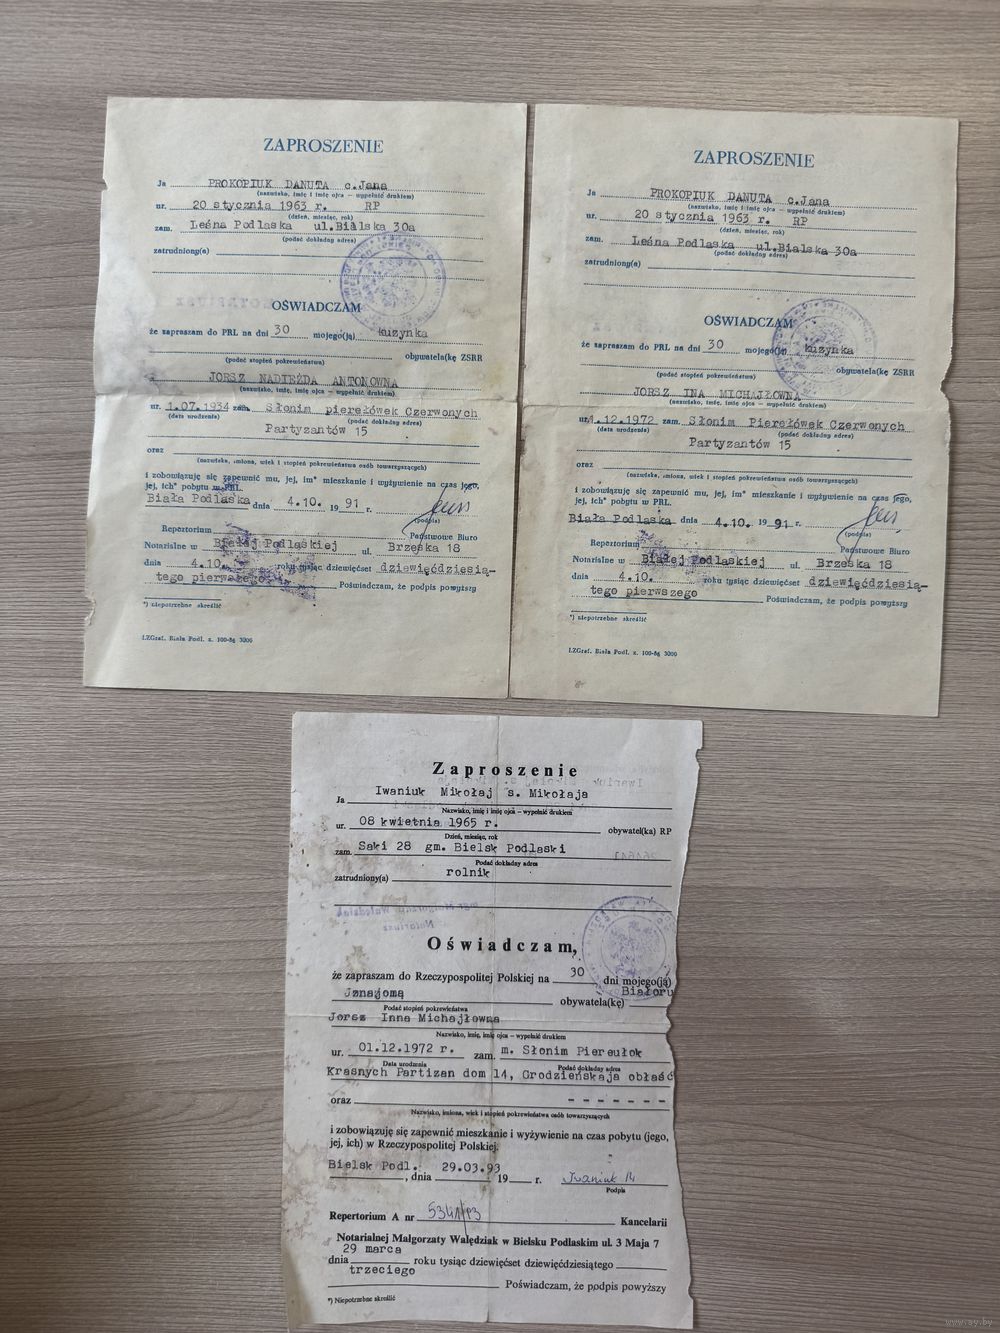 ZAPROSZENIE
Ja PROKOPIUK DANUTA c.Jana
(nazwisko, imię i imię ojca — wypełnić drukiem)
ur. 20 stycznia 1963 r. RP
(dzień, miesiąc, rok)
zam. Leśna Podlaska ul.Bialska 30a
(podać dokładny adres)
zatrudniony(a)
OŚWIADCZAM
że zapraszam do PRL na dni 30 mojego(ją) kuzynka
obywatela(kę ZSRR
(podać stopień pokrewieństwa)
JORSZ NADIEŻDA ANTONOWNA
(nazwisko, imię, imię ojca — wypełnić drukiem)
ur. 1.07.1934 zam. Słonim pierełówek Czerwonych
(data urodzenia) (podać dokładny adres)
Partyzantów 15
oraz
(nazwiska, imiona, wiek i stopień pokrewieństwa osób towarzyszących)
i zobowiązuję się zapewnić mu, jej, im* mieszkanie i wyżywienie na czas jego,
jej, ich* pobytu w PRL.
Biała Podlaska dnia 4.10. 19 91 r.
(podpis)
Repertorium Państwowe Biuro
Notarialne w Białej Podlaskiej ul. Brzeska 18
dnia 4.10. roku tysiąc dziewięćset dziewięćdziesią-
tego pierwszego Poświadczam, że podpis powyższy
*) niepotrzebne skreślić
LZGraf. Biała Podl. z. 100-86 3000
ZAPROSZENIE
Ja PROKOPIUK DANUTA c.Jana
(nazwisko, imię i imię ojca — wypełnić drukiem)
ur. 20 stycznia 1963 r. RP
(dzień, miesiąc, rok)
zam. Leśna Podlaska ul.Bialska 30a
(podać dokładny adres)
zatrudniony(a)
OŚWIADCZAM
że zapraszam do PRL na dni 30 mojego(ją) kuzynka
obywatela(kę ZSRR
(podać stopień pokrewieństwa)
JORSZ INA MICHAJŁOWNA
(nazwisko, imię, imię ojca — wypełnić drukiem)
ur. 1.12.1972 zam. Słonim Pierełówek Czerwonych
(data urodzenia) (podać dokładny adres)
Partyzantów 15
oraz
(nazwiska, imiona, wiek i stopień pokrewieństwa osób towarzyszących)
i zobowiązuję się zapewnić mu, jej, im* mieszkanie i wyżywienie na czas jego,
jej, ich* pobytu w PRL.
Biała Podlaska dnia 4.10. 19 91 r.
(podpis)
Repertorium Państwowe Biuro
Notarialne w Białej Podlaskiej ul. Brzeska 18
dnia 4.10. roku tysiąc dziewięćset dziewięćdziesią-
tego pierwszego Poświadczam, że podpis powyższy
*) niepotrzebne skreślić
LZGraf. Biała Podl. z. 100-86 3000
Zaproszenie
Ja Iwaniuk Mikołaj s. Mikołaja
Nazwisko, imię i imię ojca – wypełnić drukiem
ur. 08 kwietnia 1965 r. obywatel(ka) RP
Dzień, miesiąc, rok
zam. Saki 28 gm. Bielsk Podlaski
Podać dokładny adres
zatrudniony(a) rolnik
Oświadczam,
że zapraszam do Rzeczypospolitej Polskiej na 30 dni mojego(ją)
Znajomą obywatela(kę) Białoru
Podać stopień pokrewieństwa
Jorsz Inna Michajłowna
Nazwisko, imię, imię ojca – wypełnić drukiem
ur. 01.12.1972 r. zam. m. Słonim Piereułok
Data urodzenia Podać dokładny adres
Krasnych Partizan dom 14, Grodzieńskaja obłaść
oraz - - - - - - -
Nazwisko, imiona, wiek i stopień pokrewieństwa osób towarzyszących
i zobowiązuję się zapewnić mieszkanie i wyżywienie na czas pobytu (jego,
jej, ich) w Rzeczypospolitej Polskiej.
Bielsk Podl. , dnia 29.03.93 19 r. Iwaniuk M
Podpis
Repertorium A nr 5341/93 Kancelarii
Notarialnej Małgorzaty Walędziak w Bielsku Podlaskim ul. 3 Maja 7
dnia 29 marca roku tysiąc dziewięćset dziewięćdziesiątego
trzeciego Poświadczam, że podpis powyższy
*) Niepotrzebne skreślić
www.ay.by